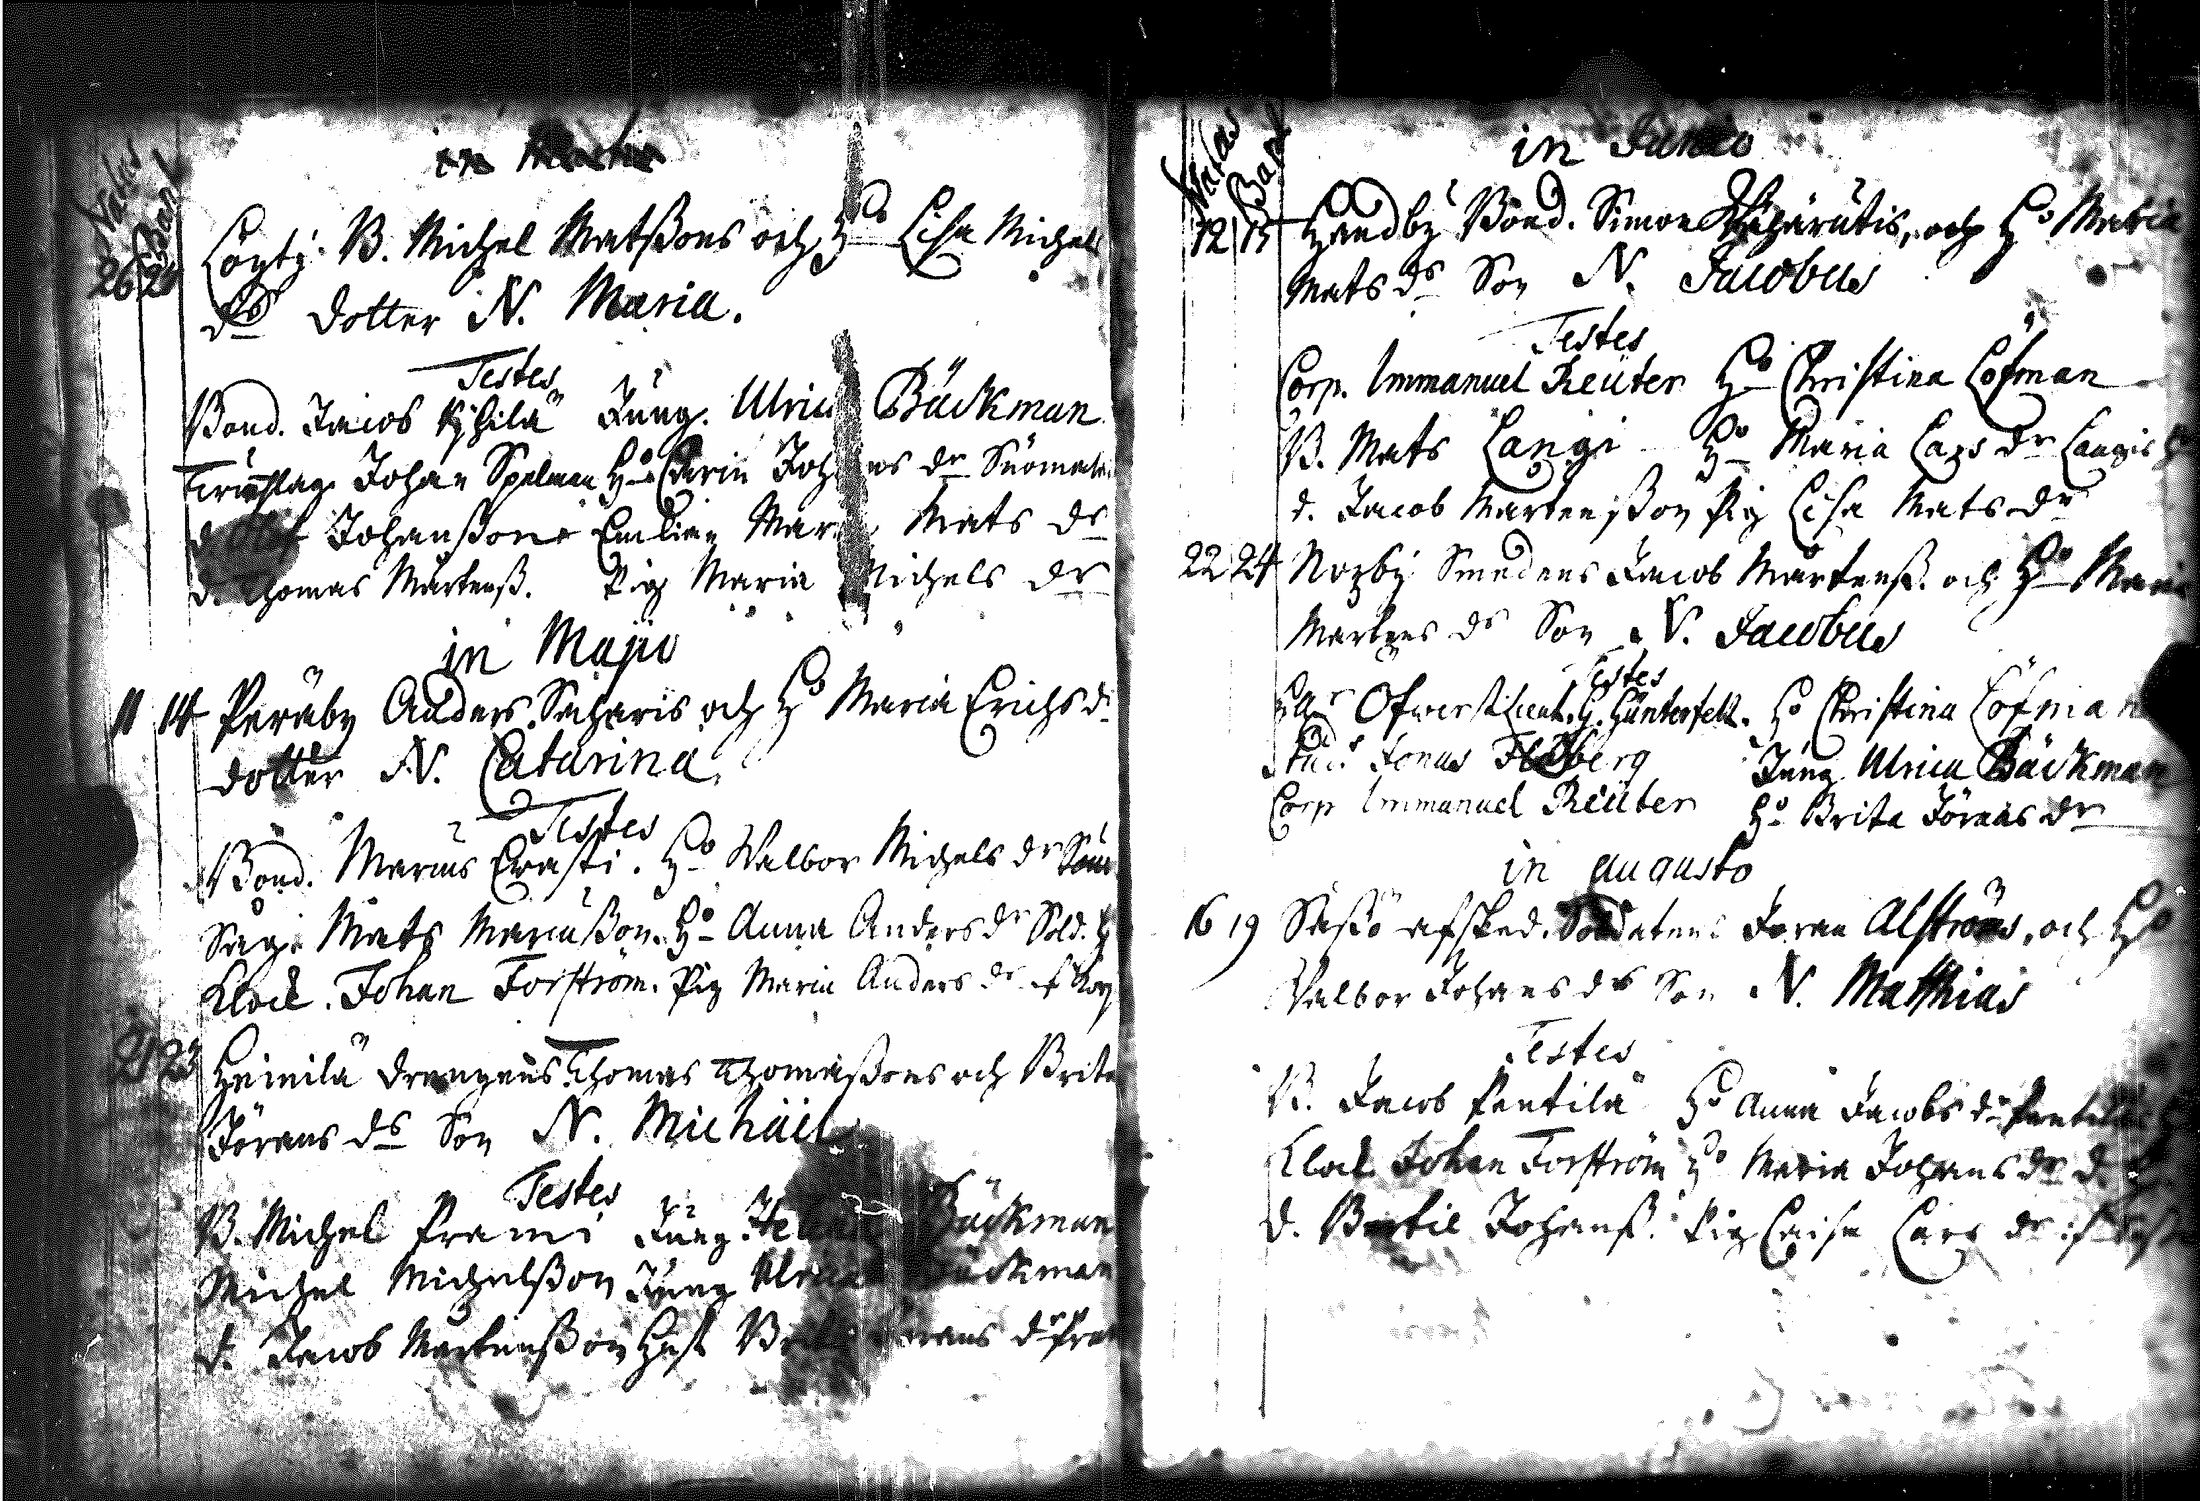 in
Natus Bapt
26 28 Löytj. B. Michel Matßons och Hu Lisa Michels
dr dotter N. Maria.
Testes
Bond. Jacob Kyhilä Jung. Ulrica Bäckman
Johan Spelman Hu Carin Johans dr
d. Olof Johanßon Maria Mats dr
d. Thomas Mårtenß. Pig Maria Michels dr
in Majo
11 14 Peräby Anders Sacharis och Ho Maria Erichs d
dotter N. Catarina
Testes
Bond. Marcus Erasti. Ho Walbor Michels dr
Mats Marcußon. Ho Anna Anders dr Sold. H
Klock. Johan Forström. Pig Maria Anders dr
21 23 Heinilä drengens Thomas Thomaßons och Brita
Jörans dr Son N. Michäel
Testes
B. Michel Prami Jung. Helena Bäckman
Michel Michelßon Jung Ulrica Bäckman
d. Jacob Mårtenßon Hust Brita Jörans dr
in Junio
Natus Bapt
12 15 Handby Bond. Simon och Ho Maria
Mats dr Son N. Jacobus
Testes
Corp. Immanuel Reüter Ho Christina Löfman
B. Mats Langi Ho Maria Lars dr Langis
d. Jacob Mårtenßon Pig Lisa Mats dr
22 24 Norby Smedens Jacob Mårtenß. och Ho Maria
Mårtens dr Son N. Jacobus
Testes
Öfwerstlieut. G. Günterfelt. Ho Christina Löfman
Stud. Jonas Jung. Ulrica Bäckman
Corp Immanuel Reüter Ho Brita Jörans dr
in augusto
16 19 Säßö afsked. Soldatens Joran Alströms, och Ho
Walbor Johans dr Son N. Matthias
Testes
B. Jacob Pentilä Ho Anna Jacobs dr Pentiläs
Klock Johan Forström Ho Maria Johans dr
d. Bertil Johanß. Pig Caisa Lars dr